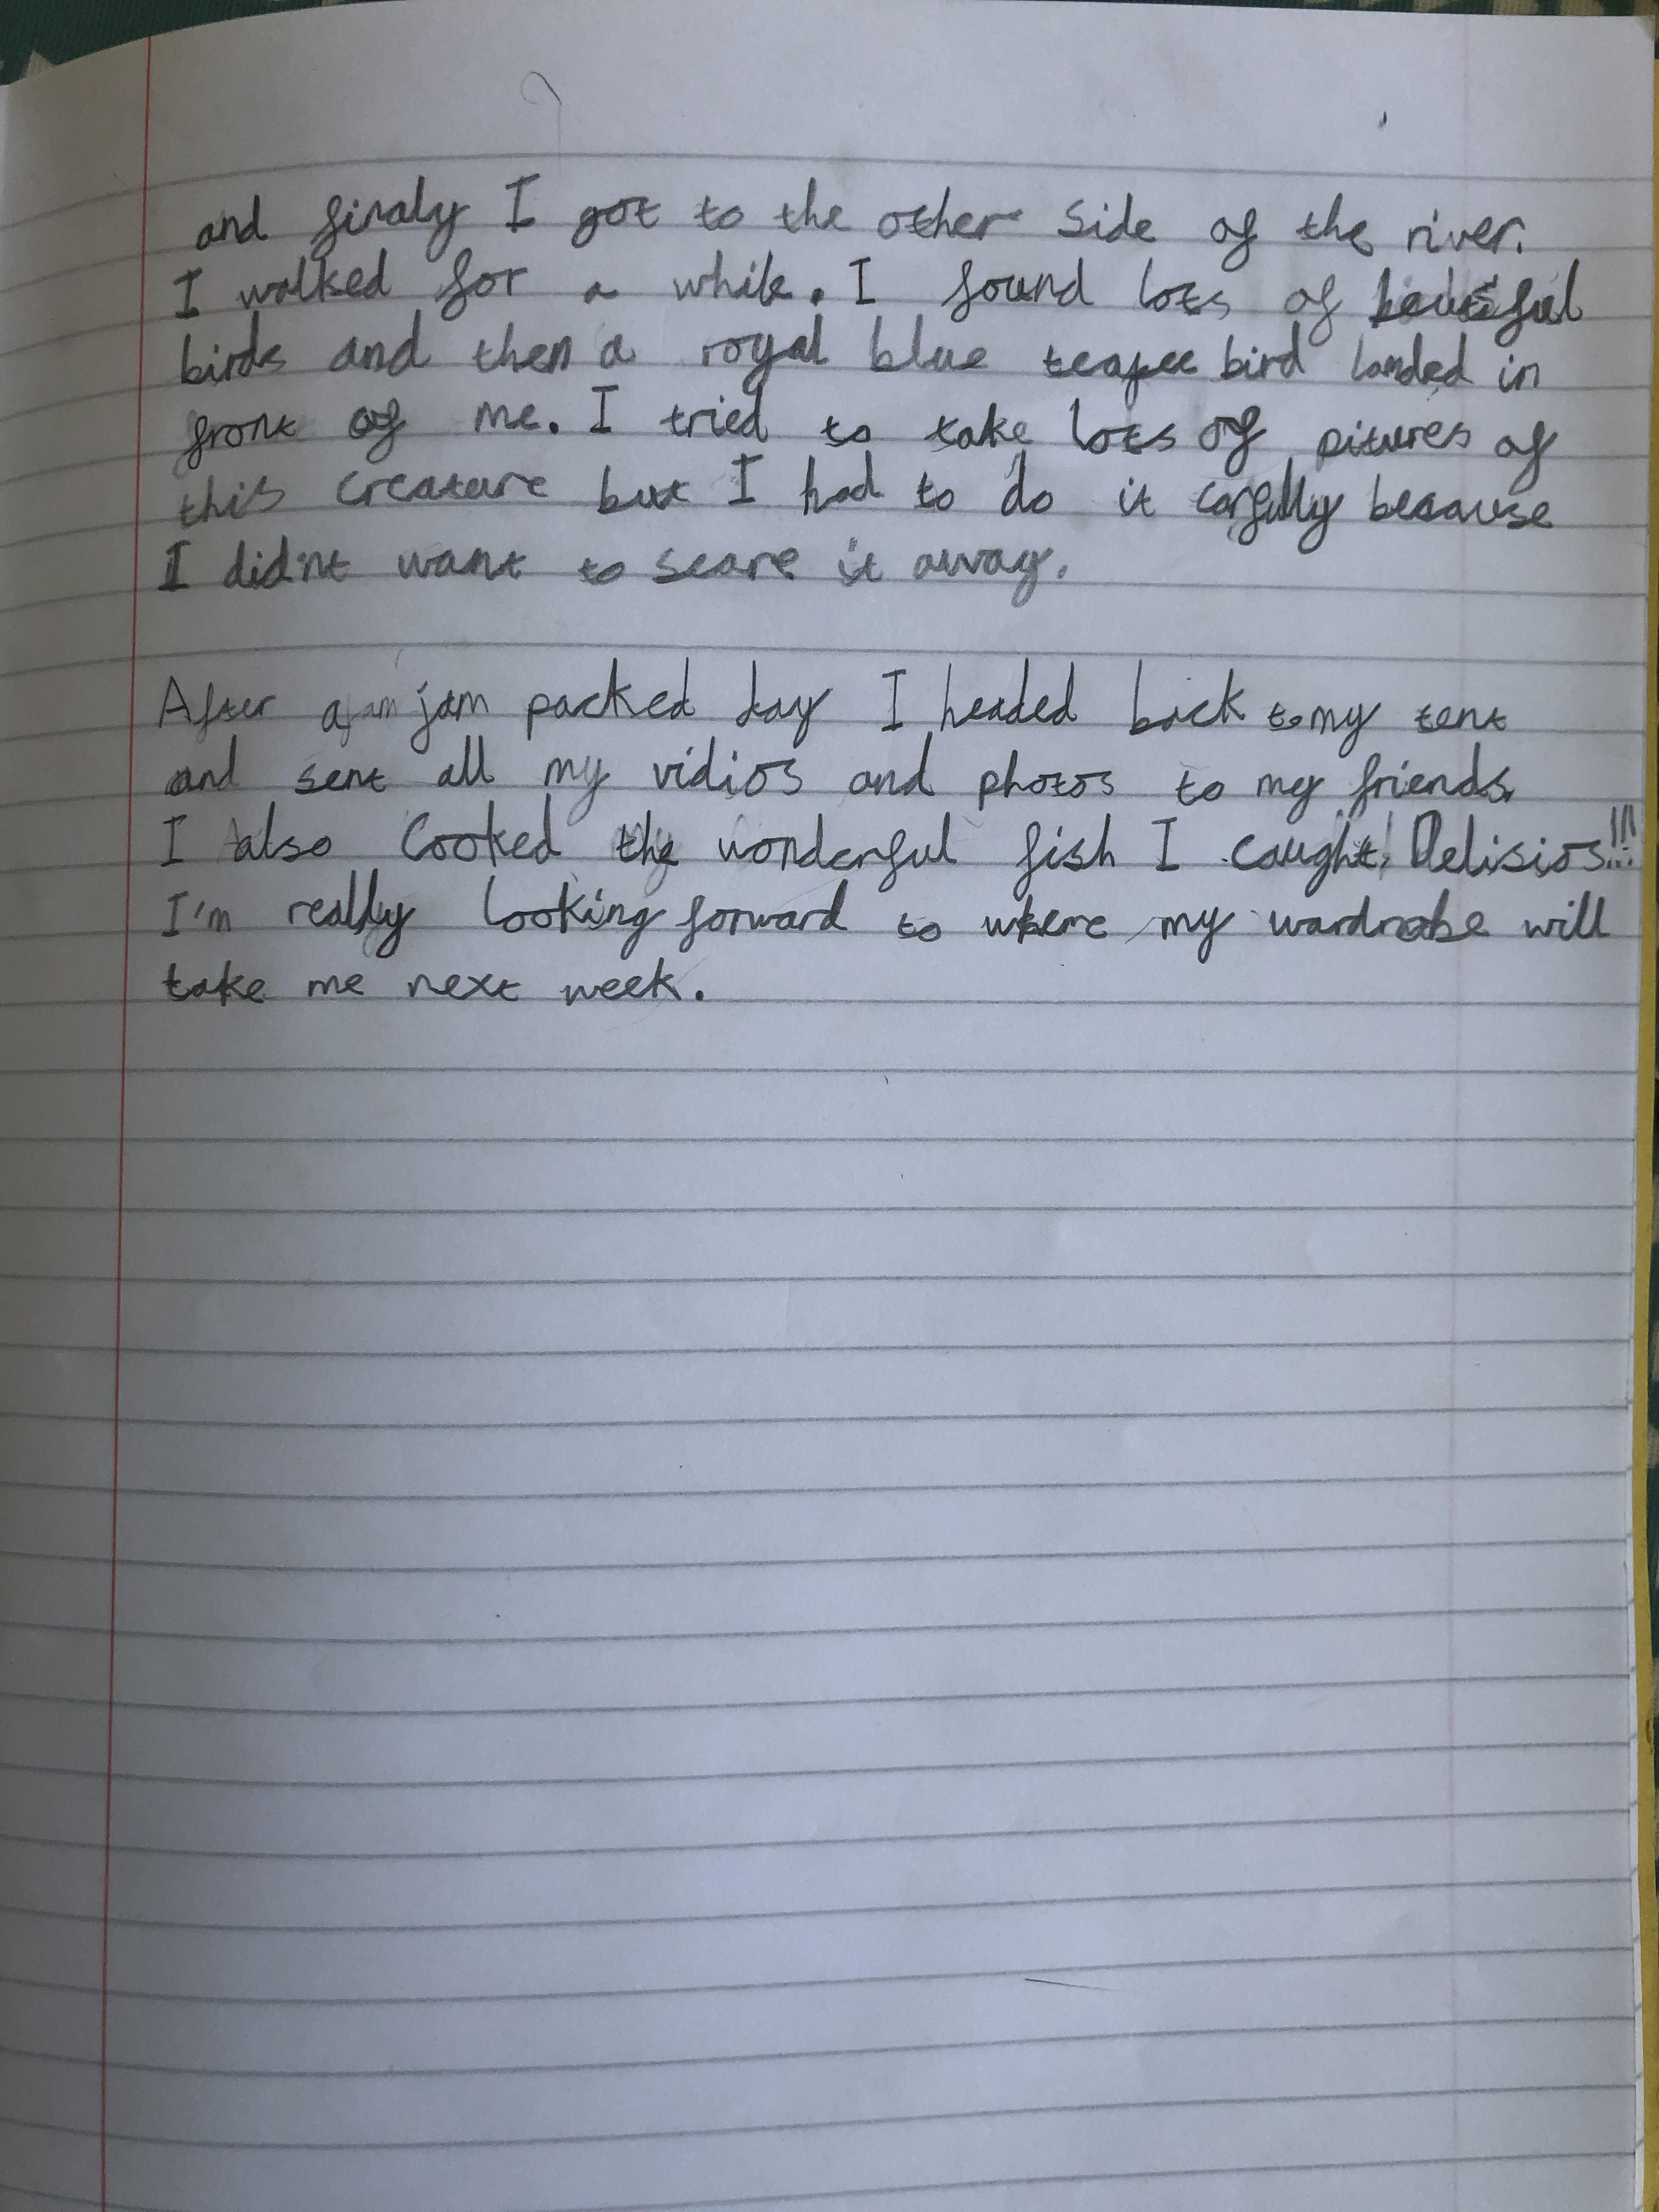 and finaly I got to the other side of the river.
I walked for a while. I found lots of
birds and then a royal blue teapee bird landed in
front of me. I tried to take lots of pitures of
this creature but I had to do it carfully because
I did'nt want to scare it away.
After a jam packed day I headed back to my tent
and sent all my vidios and photos to my friends.
I also cooked the wonderful fish I caught. Delisios!!!
I'm really looking forward to where my wardrobe will
take me next week.